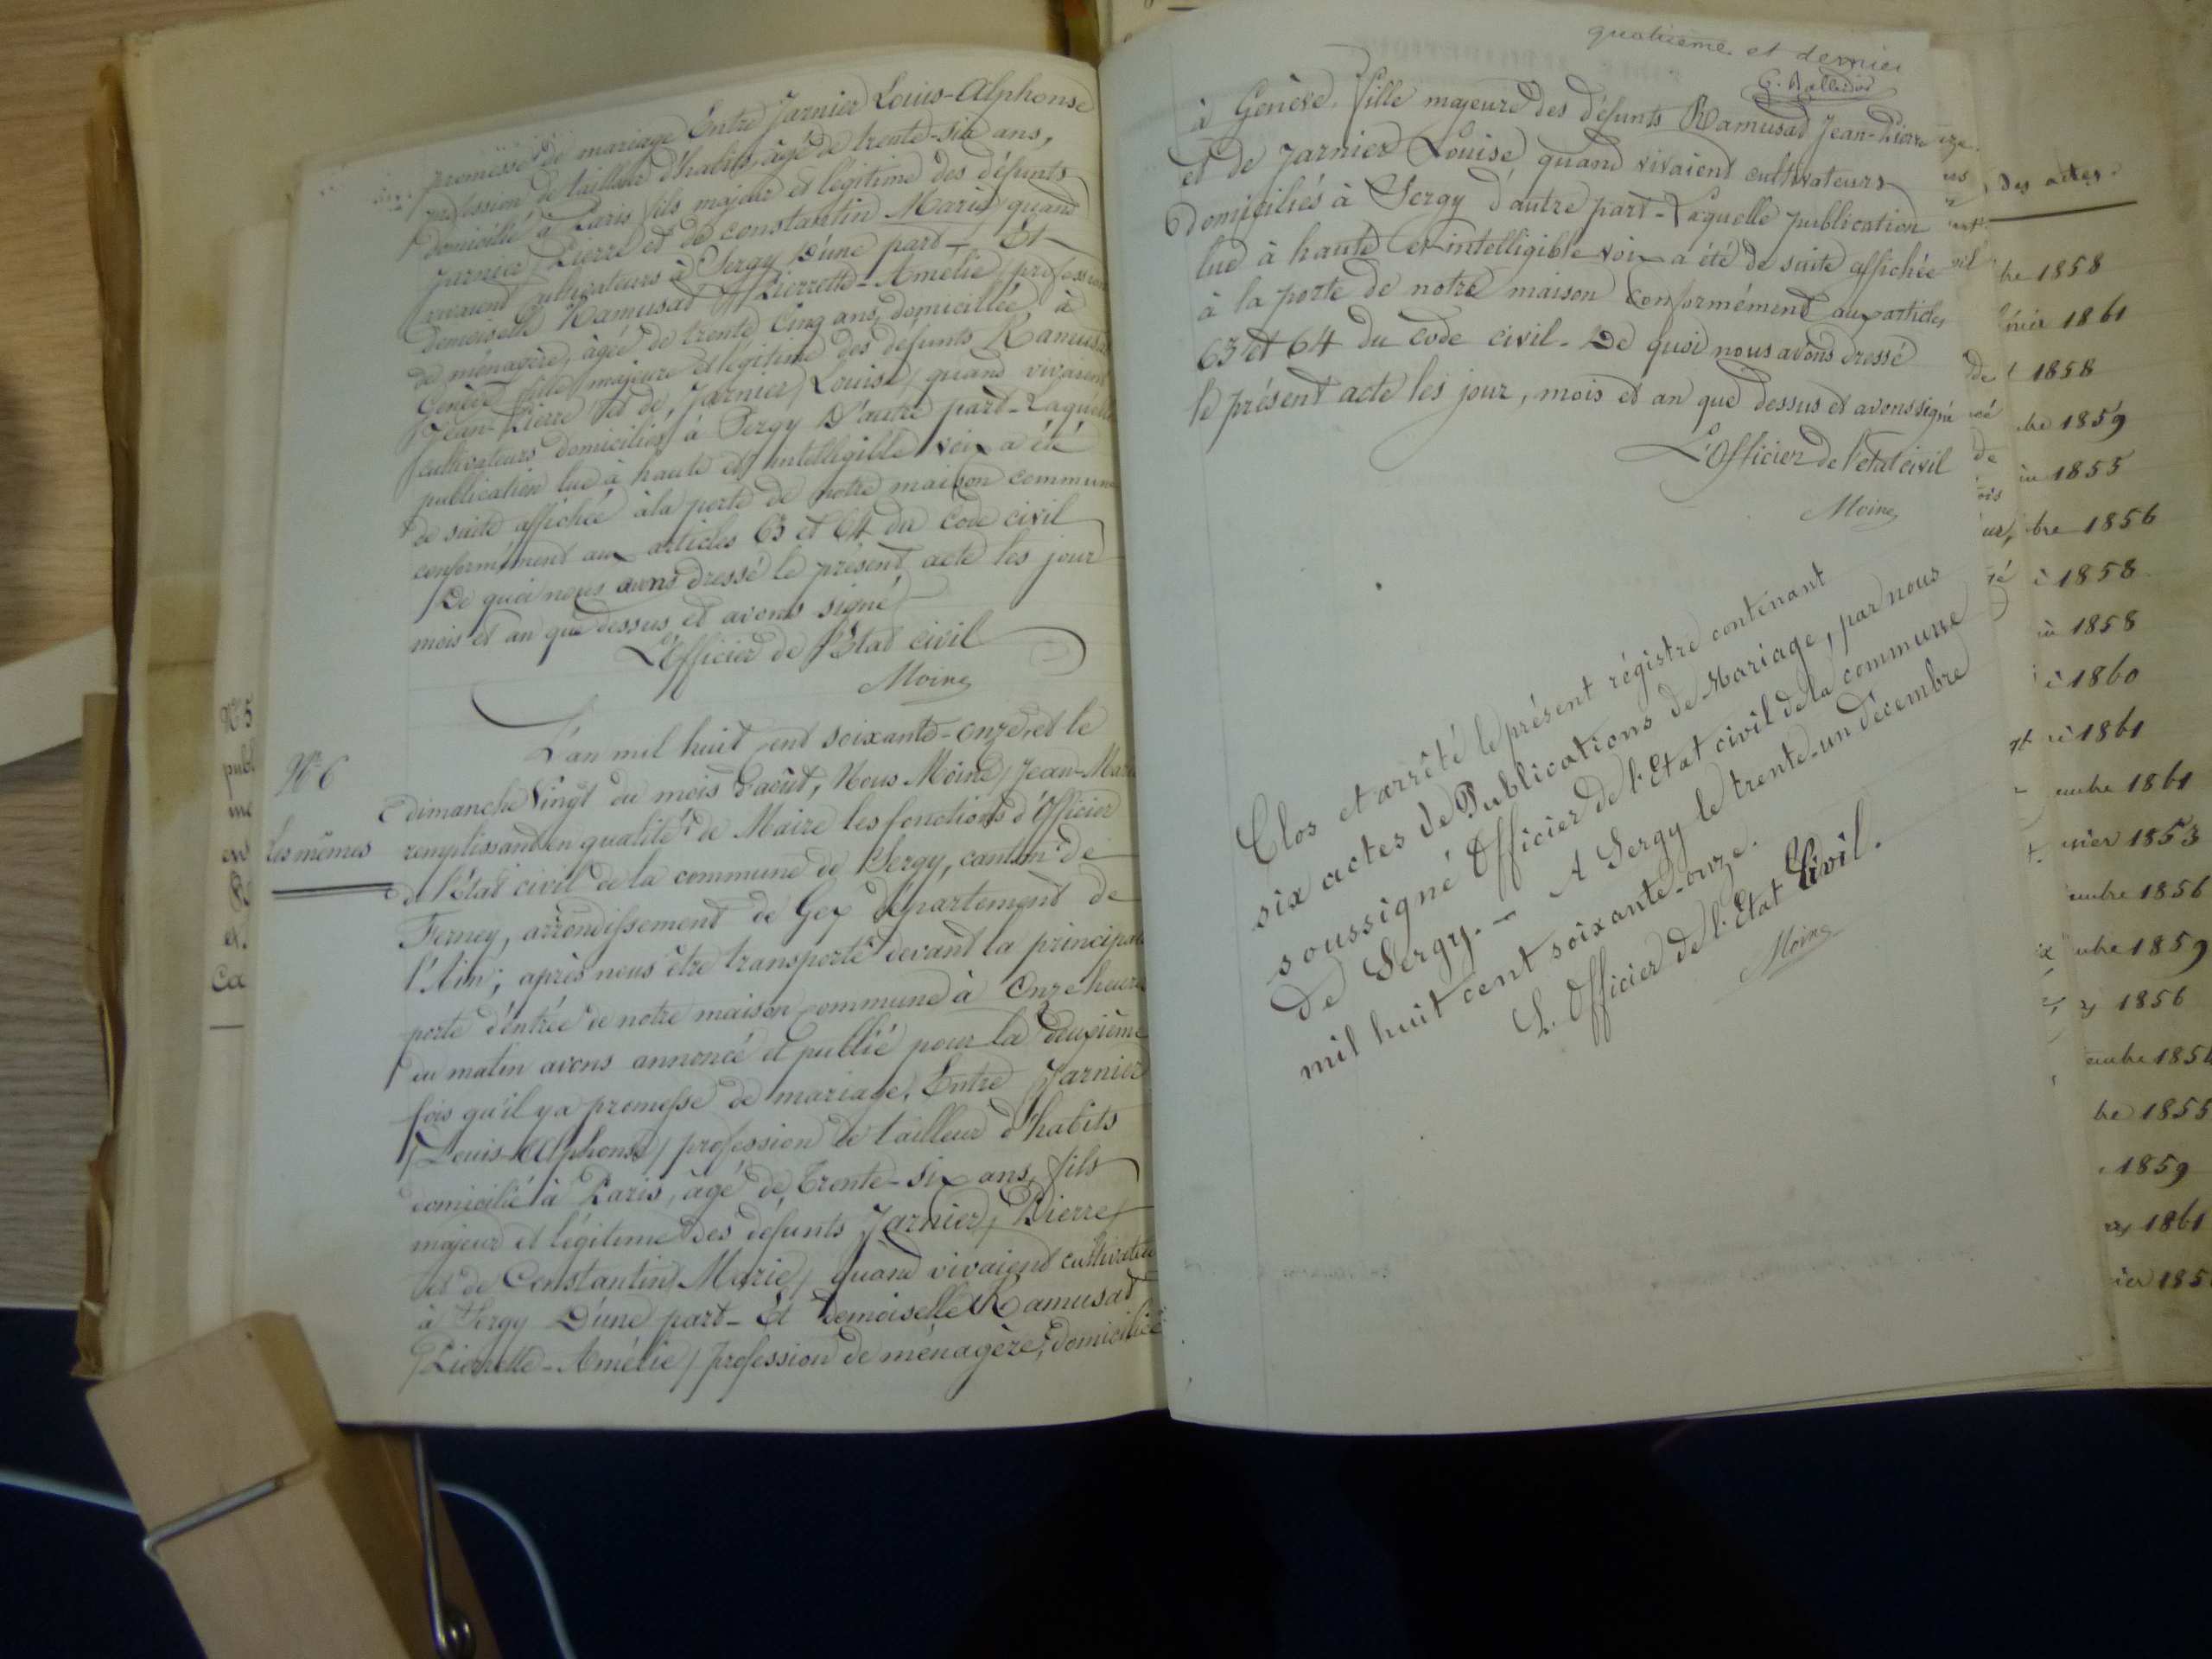 promesse de mariage Entre Jarnier Louis-Alphonse
profession de tailleur d'habits âgé de trente-six ans,
domicilié à Paris fils majeur et légitime des défunts
Jarnier Pierre et de Constantin Marie quand
vivaient cultivateurs à Sergy D'une part - Et
demoiselle Ramusat Pierrette-Amélie profession
de ménagère, âgée de trente cinq ans, domiciliée à
Genève fille majeure et légitime des défunts Ramusat
Jean-Pierre et de Jarnier Louise quand vivaient
cultivateurs domiciliés à Sergy D'autre part - Laquelle
publication lue à haute et intelligible voix a été
de suite affichée à la porte de notre maison commune
conformément aux articles 63 et 64 du Code civil
De quoi nous avons dressé le présent acte les jour
mois et an que dessus et avons signé
L'Officier de l'Etat civil
Moine
N° 6
Les mêmes
L'an mil huit cent soixante-onze, et le
dimanche Vingt du mois d'août, Nous Moine Jean-Marie
remplissant en qualité de Maire les fonctions d'Officier
de l'Etat civil de la commune de Sergy, canton de
Ferney, arrondissement de Gex département de
l'Ain; après nous être transporté devant la principale
porte d'entrée de notre maison commune à Onze heures
du matin avons annoncé et publié pour la deuxième
fois qu'il y a promesse de mariage, Entre Jarnier
Louis-Alphonse profession de tailleur d'habits
domicilié à Paris, âgé de Trente-six ans, fils
majeur et légitime des défunts Jarnier, Pierre
et de Constantin Marie, quand vivaient cultivateurs
à Sergy D'une part - Et demoiselle Ramusat
Pierrette-Amélie profession de ménagère, domiciliée
quatrième et dernier
à Genève, fille majeure des défunts Ramusat Jean-Pierre
et de Jarnier Louise, quand vivaient cultivateurs
domiciliés à Sergy d'autre part - Laquelle publication
lue à haute et intelligible voix a été de suite affichée
à la porte de notre maison conformément aux articles
63 et 64 du Code civil - De quoi nous avons dressé
le présent acte les jour, mois et an que dessus et avons signé
L'Officier de l'état civil
Moine
Clos et arrêté le présent régistre contenant
six actes de Publications de Mariage, par nous
soussigné Officier de l'Etat civil de la commune
de Sergy. - A Sergy le trente-un décembre
mil huit cent soixante-onze.
L'Officier de l'Etat Civil.
Moine
des actes.
bre 1858
1861
1858
bre 1859
1855
bre 1856
1858
1858
1860
1861
embre 1861
1853
embre 1856
mbre 1859
1856
embre 1854
bre 1855
1859
1861
185